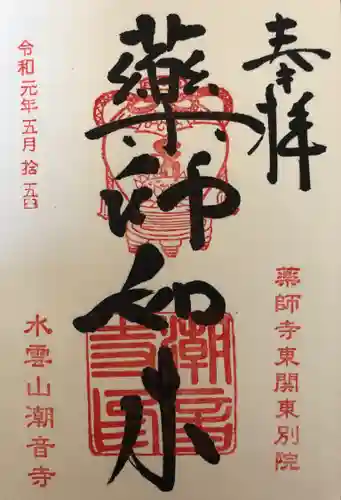 奉拝
薬師寺東関東別院
薬師如来
令和元年五月拾五日
水雲山潮音寺